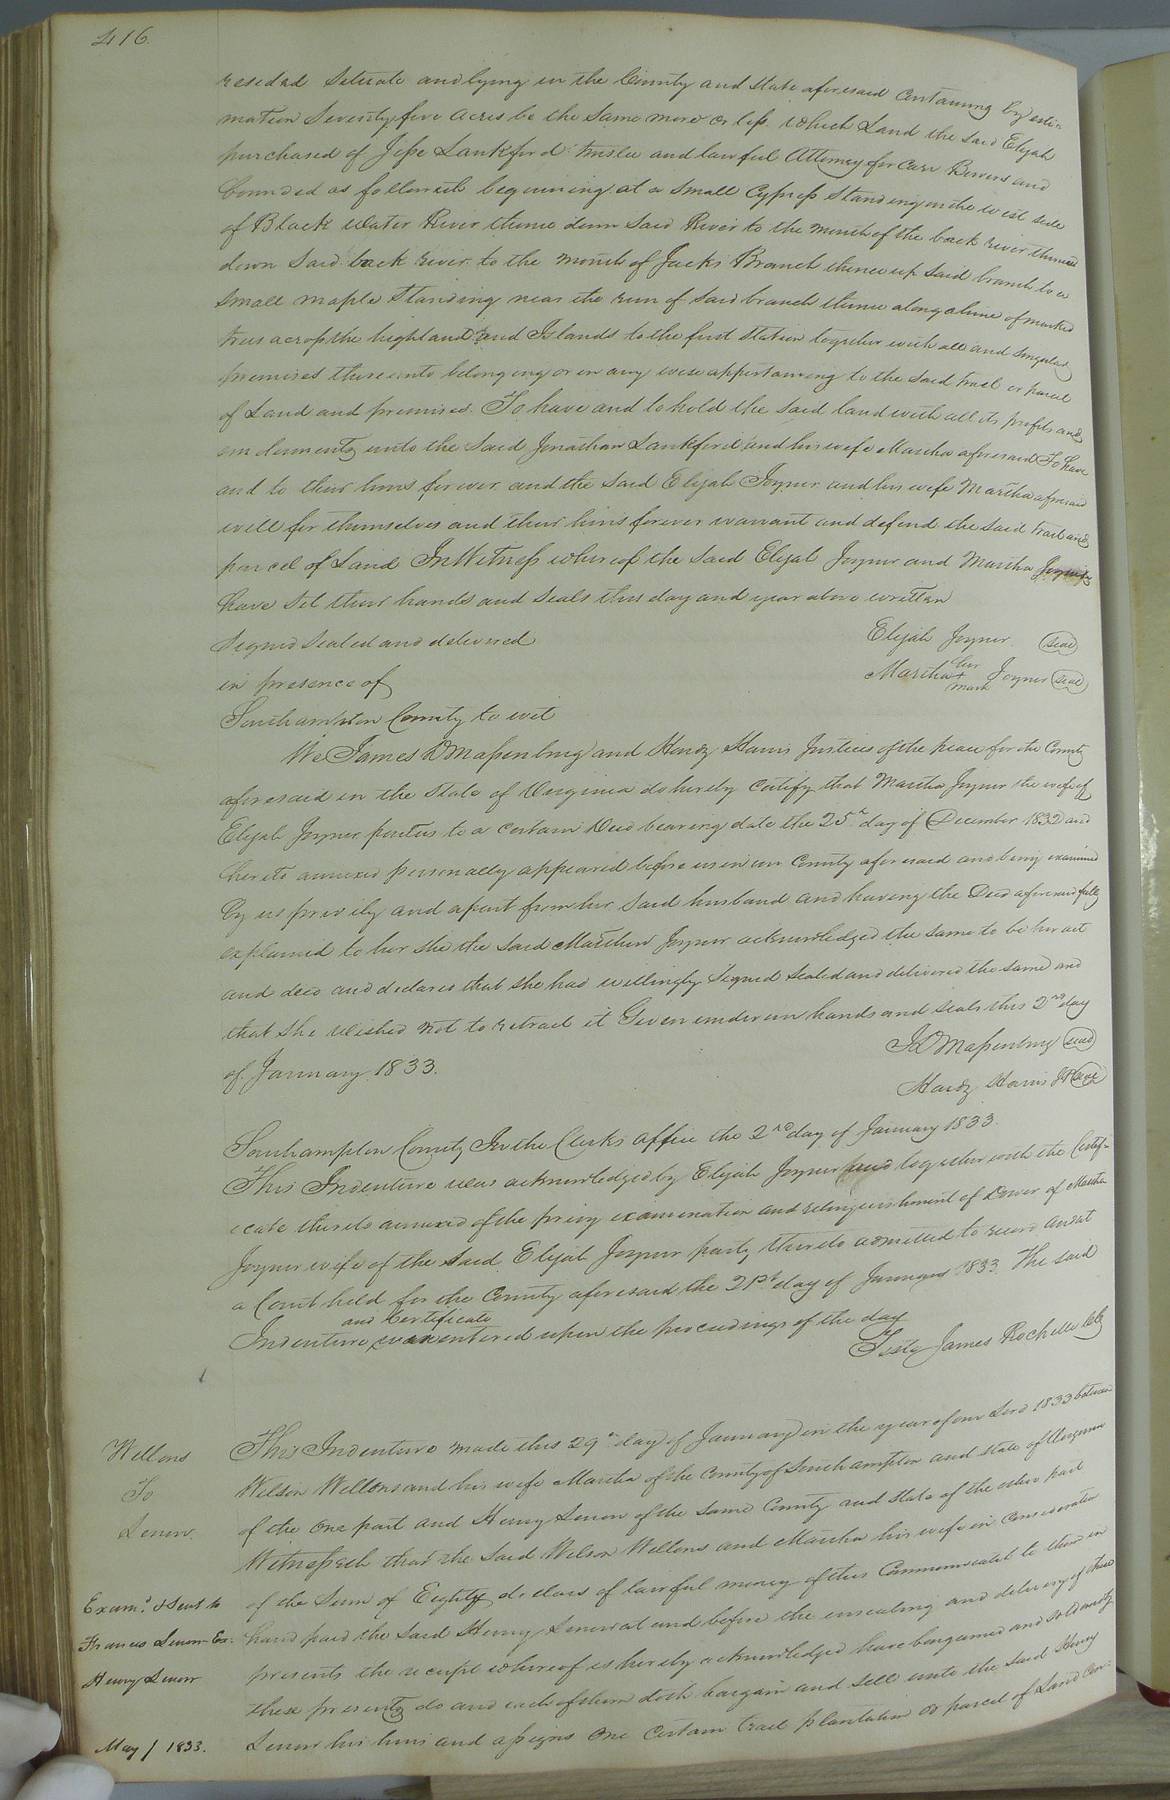 416.
resided Situate and lying in the County and State aforesaid Containing by esti-
mation Seventy five acres be the Same more or less which Land the said Elijah
purchased of Jesse Lankford trustee and lawful Attorney for Bowers and
bounded as followeth beginning at a Small Cypress Standing on the west side
of Black Water River thence down Said River to the mouth of the back river thence
down Said back river to the mouth of Jacks Branch thence up Said branch to a
Small maple Standing near the run of said branch thence along a line of marked
trees across the highland and Islands to the first Station together with all and Singular
premises thereunto belonging or in any wise appertaining to the said tract or parcel
of Land and premises. To have and to hold the said land with all its profits and
emoluments unto the Said Jonathan Lankford and his wife Martha aforesaid To have
and to their heirs forever and the said Elijah Joyner and his wife Martha aforesaid
will for themselves and their heirs forever warrant and defend the said tract and
parcel of Land In Witness whereof the said Elijah Joyner and Martha Joyner
have Set their hands and Seals this day and year above written
Signed Sealed and delivered
Elijah Joyner (seal)
in presence of
Martha her + mark Joyner (seal)
Southampton County to wit
We James D Massenburg and Hardy Harris Justices of the peace for the County
aforesaid in the State of Virginia do hereby Certify that Martha Joyner the wife of
Elijah Joyner parties to a certain Deed bearing date the 25th day of December 1832 and
hereto annexed personally appeared before us in our County aforesaid and being examined
by us privily and apart from her Said husband and having the Deed aforesaid fully
explained to her she the said Martha Joyner acknowledged the same to be her act
and deed and declared that she had willingly Signed Sealed and delivered the same and
that She wished not to retract it Given under our hands and Seals this 2nd day
of January 1833.
J D Massenburg (seal)
Hardy Harris JP (seal)
Southampton County In the Clerks office the 2nd day of January 1833.
This Indenture was acknowledged by Elijah Joyner and together with the Certif-
icate thereto annexed of the privy examination and relinquishment of Dower of Martha
Joyner wife of the Said Elijah Joyner party thereto admitted to record and at
a Court held for the County aforesaid the 21st day of January 1833 The said
and Certificate
Indenture was entered upon the proceedings of the day
Teste James Rochelle Clk
Wellons
To
Lenow.
This Indenture made this 29th day of January in the year of our Lord 1833 between
Wilson Wellons and his wife Martha of the County of Southampton and State of Virginia
of the One part and Henry Lenow of the Same County and State of the other part
Witnesseth that the Said Wilson Wellons and Martha his wife in Consideration
of the Sum of Eighty dollars of lawful money of this Commonwealth to them in
hand paid the Said Henry Lenow at and before the ensealing and delivery of these
presents the receipt whereof is hereby acknowledged have bargained and sold and by
these presents do and each of them doth bargain and sell unto the said Henry
Lenow his heirs and assigns One Certain tract plantation or parcel of Land Con-
Examd. & Sent to
Frances Lenow Ex.
Henry Lenow
May 1 1833.